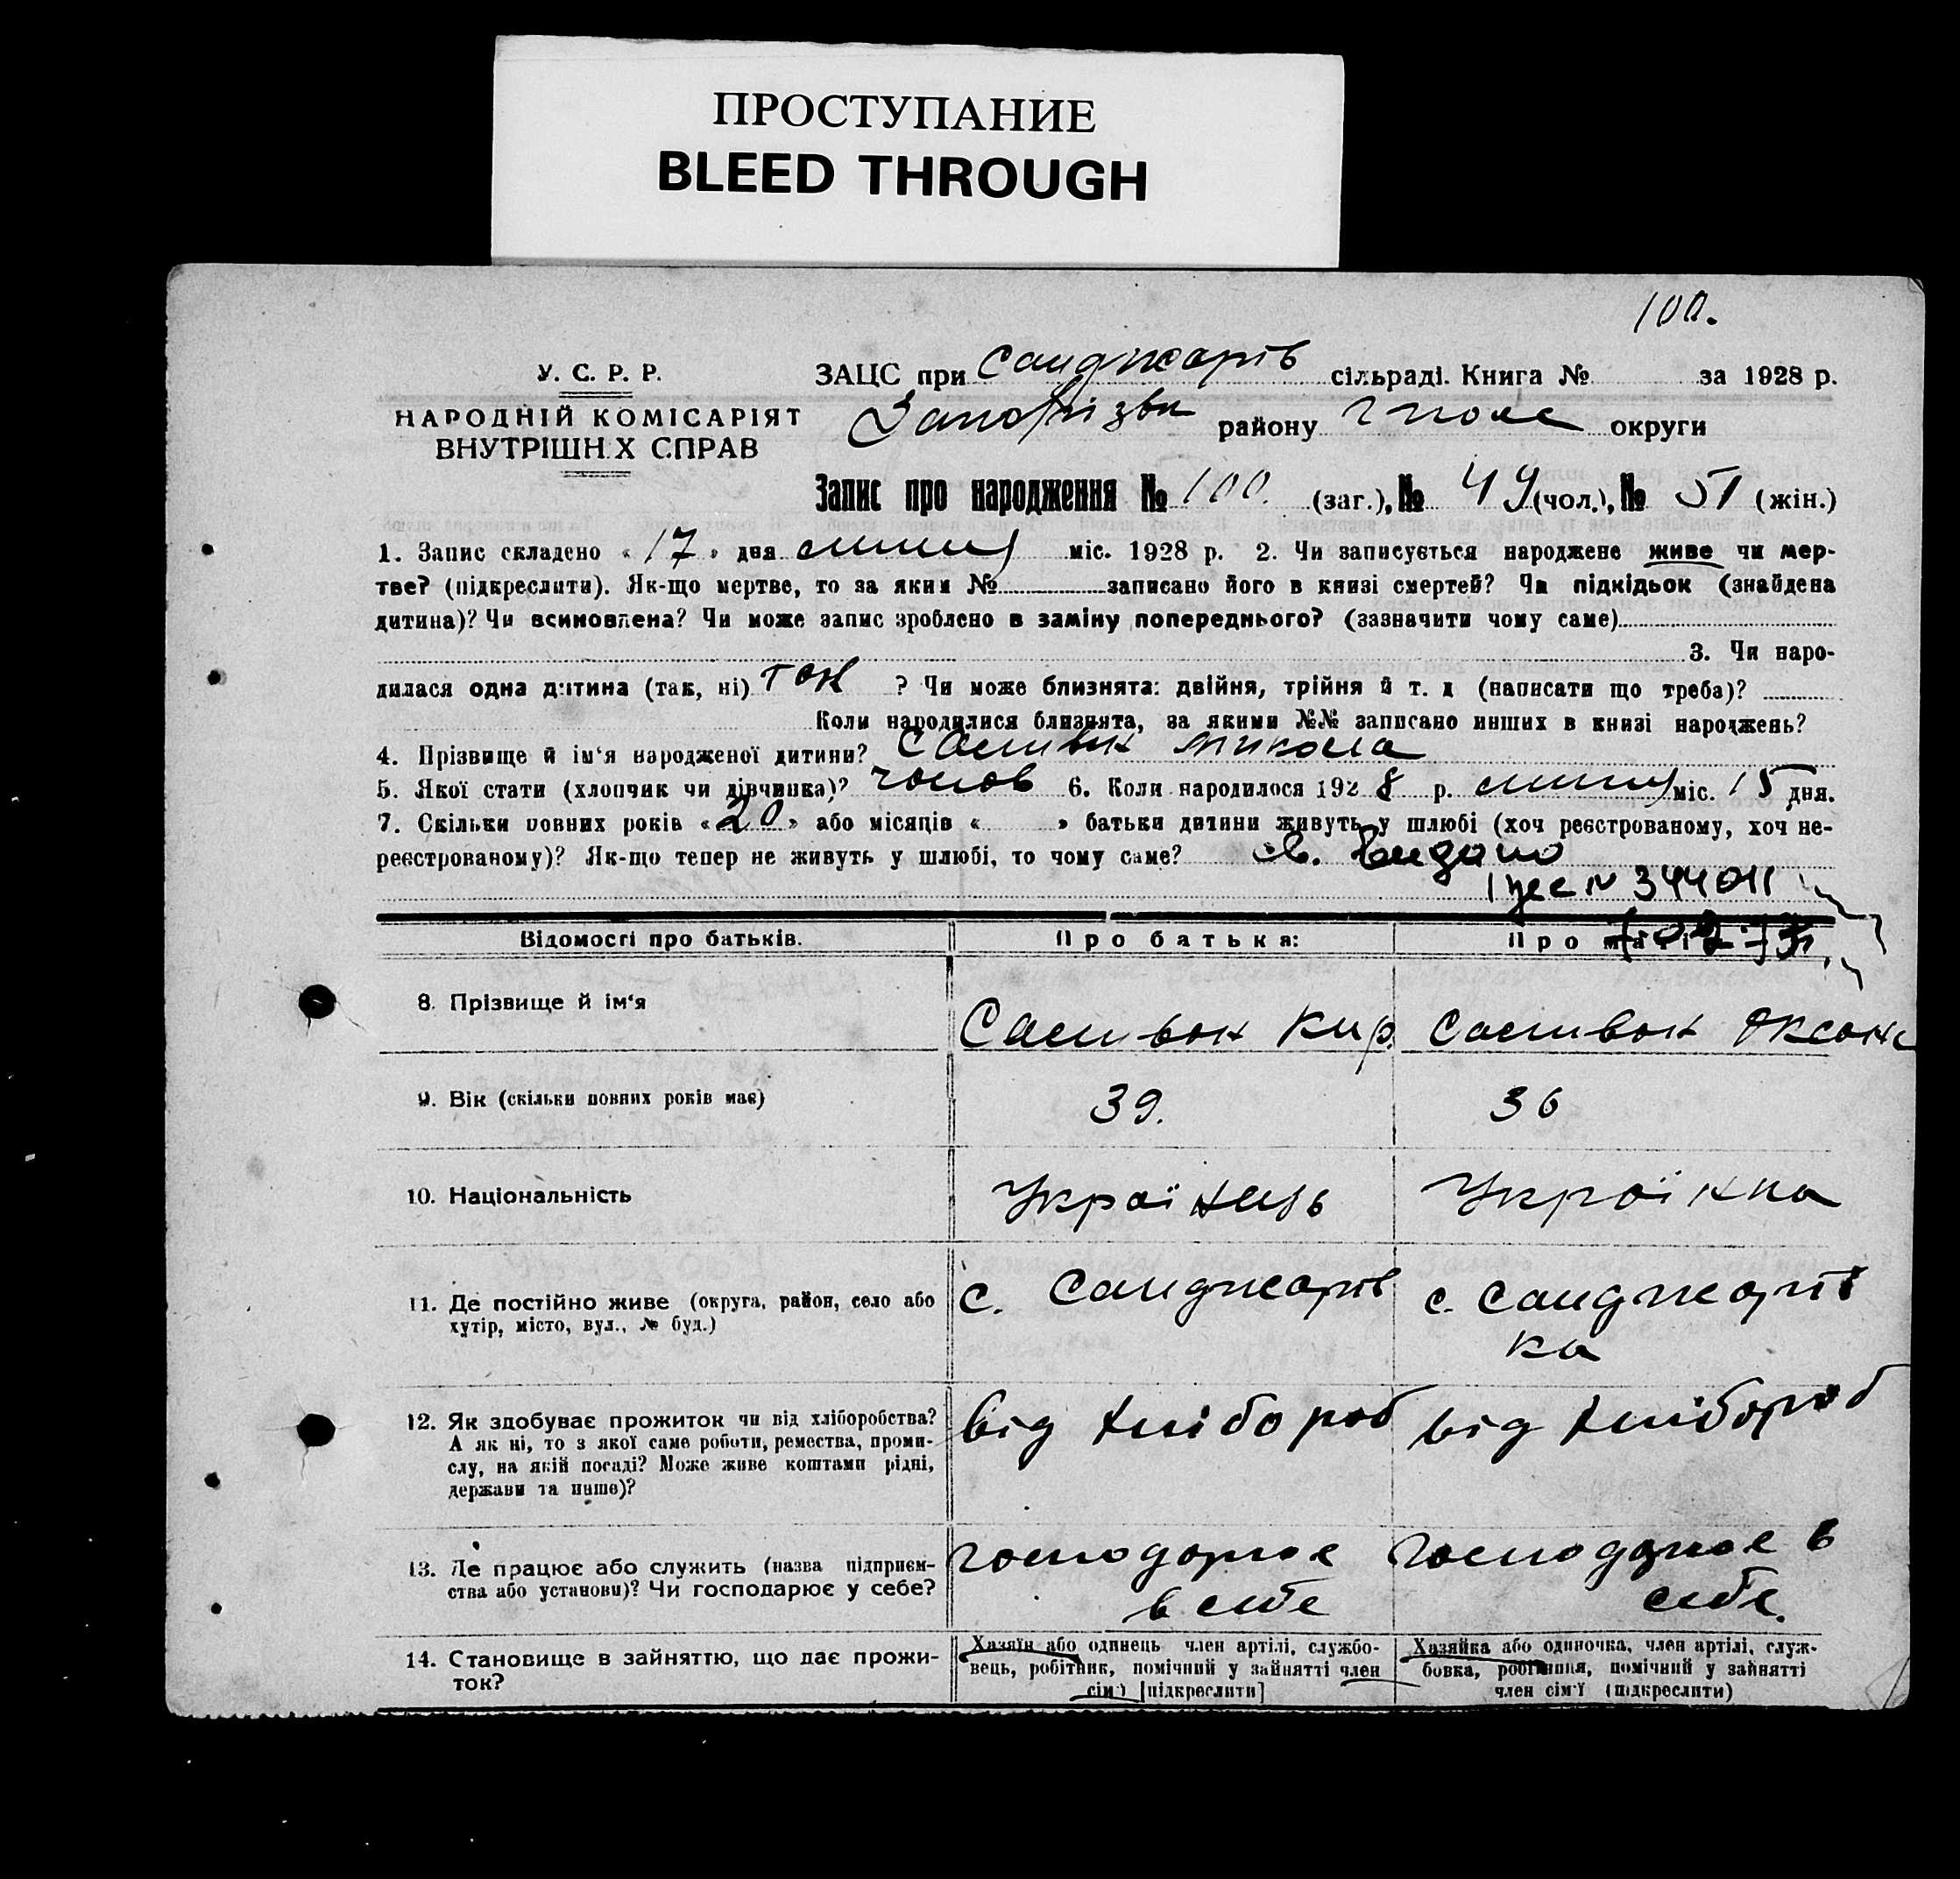 ПРОСТУПАНИЕ
BLEED THROUGH
100.
У. С. Р. Р.
НАРОДНІЙ КОМІСАРІЯТ
ВНУТРІШН.Х СПРАВ
ЗАЦС при Санджарів сільраді. Книга № за 1928 р.
району округи
Запис про народження № 100. (заг.), № 49 (чол.), № 51 (жін.)
1. Запис складено « 17 » дня липня міс. 1928 р. 2. Чи записується народжене живе чи мер-
тве? (підкреслити). Як-що мертве, то за яким № записано його в книзі смертей? Чи підкідьок (знайдена
дитина)? Чи всиновлена? Чи може запис зроблено в заміну попереднього? (зазначити чому саме)
3. Чи наро-
дилася одна дитина (так, ні) так ? Чи може близнята: двійня, трійня й т. д (написати що треба)?
Коли народилися близнята, за якими №№ записано инших в книзі народжень?
4. Прізвище й ім'я народженої дитини? Микола
5. Якої стати (хлопчик чи дівчинка)? чолов 6. Коли народилося 1928 р. липня міс. 15 дня.
7. Скільки повних років « 20 » або місяців « » батьки дитини живуть у шлюбі (хоч реєстрованому, хоч не-
реєстрованому)? Як-що тепер не живуть у шлюбі, то чому саме?
№ 344011
Відомості про батьків.
Про батька:
Про
8. Прізвище й ім'я
Сасивон Кир.
Сасивон Оксана
9. Вік (скільки повних років має)
39.
36
10. Національність
Українець
Українка
11. Де постійно живе (округа, район, село або
хутір, місто, вул., № буд.)
с. Санджарів
с. Санджарів
ка
12. Як здобуває прожиток чи від хліборобства?
А як ні, то з якої саме роботи, ремества, проми-
слу, на якій посаді? Може живе коштами рідні,
держави та инше)?
від хлібороб
від хлібороб
13. Де працює або служить (назва підприєм-
ства або установи)? Чи господарює у себе?
господарює
в себе
господарює в
себе.
14. Становище в зайняттю, що дає прожи-
ток?
Хазяїн або одинець член артілі, службо-
вець, робітник, помічний у зайнятті член
сім'ї [підкреслити]
Хазяйка або одиночка, член артілі, служ-
бовка, робітниця, помічний у зайнятті
член сім'ї (підкреслити)